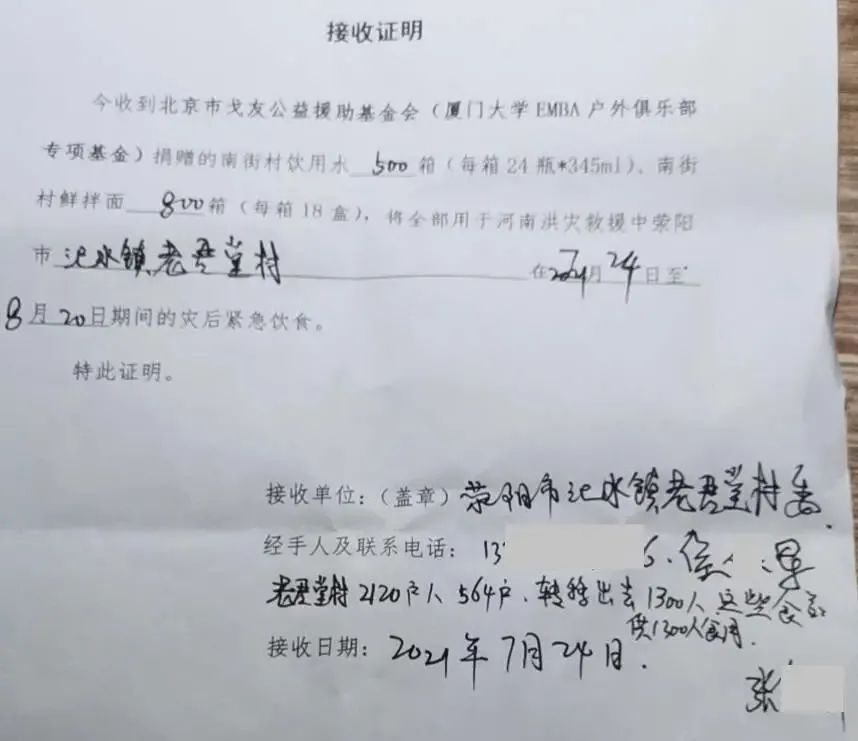 接收证明
今收到北京市戈友公益援助基金会（厦门大学EMBA户外俱乐部
专项基金）捐赠的南街村饮用水 500 箱（每箱24瓶*345ml）、南街
村鲜拌面 800 箱（每箱18盒），将全部用于河南洪灾救援中荥阳
市 汜水镇老君堂村 在 月 24 日至
8月20日期间的灾后紧急饮食。
特此证明。
接收单位：（盖章）荥阳市汜水镇老君堂村委
经手人及联系电话： 13
老君堂村2120 人564户.转移出去1300人这些食品
供1300人食用.
接收日期： 2021年7月24日.
张